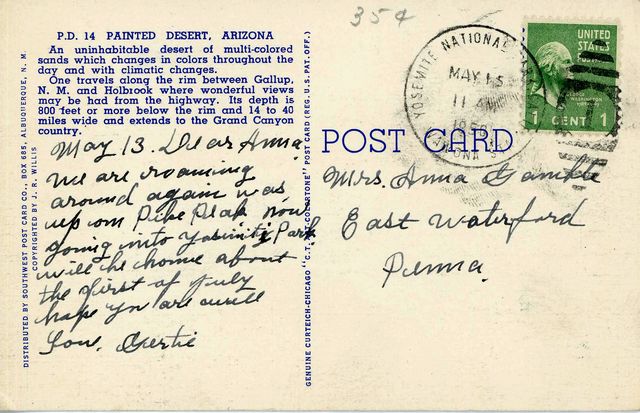 35¢
P.D. 14 PAINTED DESERT, ARIZONA
An uninhabitable desert of multi-colored
sands which changes in colors throughout the
day and with climatic changes.
One travels along the rim between Gallup,
N. M. and Holbrook where wonderful views
may be had from the highway. Its depth is
800 feet or more below the rim and 14 to 40
miles wide and extends to the Grand Canyon
country.
May 13. Dear Anna.
we are roaming
around again was
up on Pike Peak now
going into Yosimiti Park
will be home about
the first of July
hope you are well
Love. Gertie
DISTRIBUTED BY SOUTHWEST POST CARD CO., BOX 685, ALBUQUERQUE, N. M.
COPYRIGHTED BY J. R. WILLIS
GENUINE CURTEICH-CHICAGO "C.T. ART-COLORTONE" POST CARD (REG. U.S. PAT. OFF.)
POST CARD
YOSEMITE NATIONAL
MAY 15
11 AM
UNITED
STATES
POSTAGE
1 CENT 1
Mrs. Anna Gamble
East Waterford
Penna.